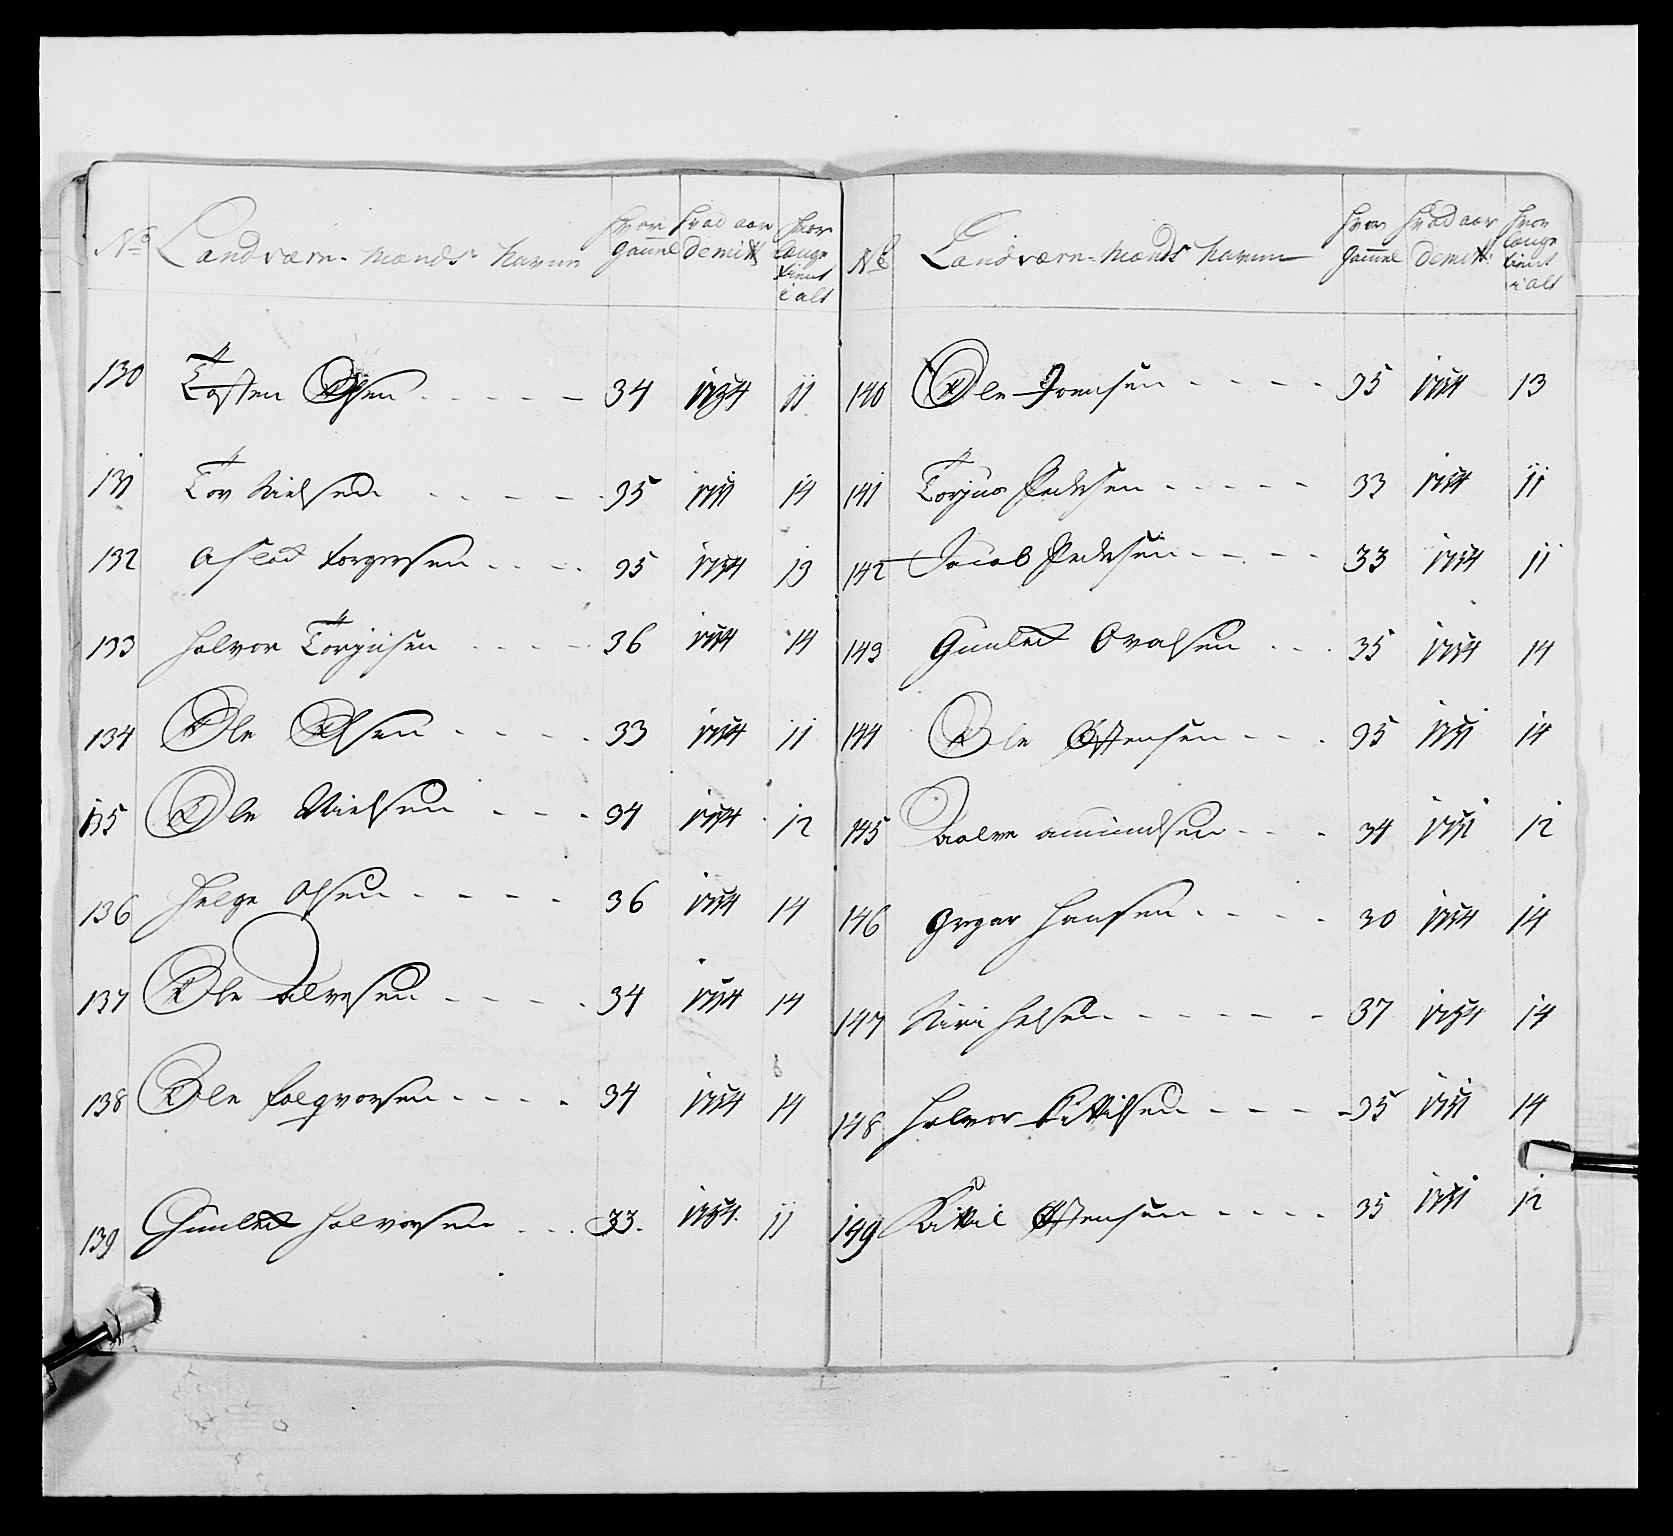 No Landværn-Mænds Navne Hvor gammel Hvad aar Demitt: Hvor længe tient i alt
130 Tosten Olsen 34 1754 11
131 Tov Nielsen 35 1751 14
132 Aslak Torgersen 35 1754 13
133 Halvor Torgiusen 36 1754 14
134 Ole Olsen 33 1754 11
135 Ole Nielsen 34 1754 12
136 Helge Olsen 36 1754 14
137 Ole Alvesen 34 1754 14
138 Ole Folqvorsen 34 1754 14
139 Gunled Halvorsen 33 1754 11
No Landværn-Mænds Navne Hvor gammel Hvad aar Demitt: Hvor længe tient i alt
140 Ole Joensen 35 1754 13
141 Torjus Pedersen 33 1754 11
142 Jacob Pedersen 33 1754 11
143 Gunled 35 1754 14
144 Ole Østensen 35 1751 14
145 Aalve Amundsen 34 1751 12
146 Greger Hansen 30 1754 14
147 37 1754 14
148 Halvor Kittilsen 35 1751 14
149 Kittil Østensen 35 1751 12